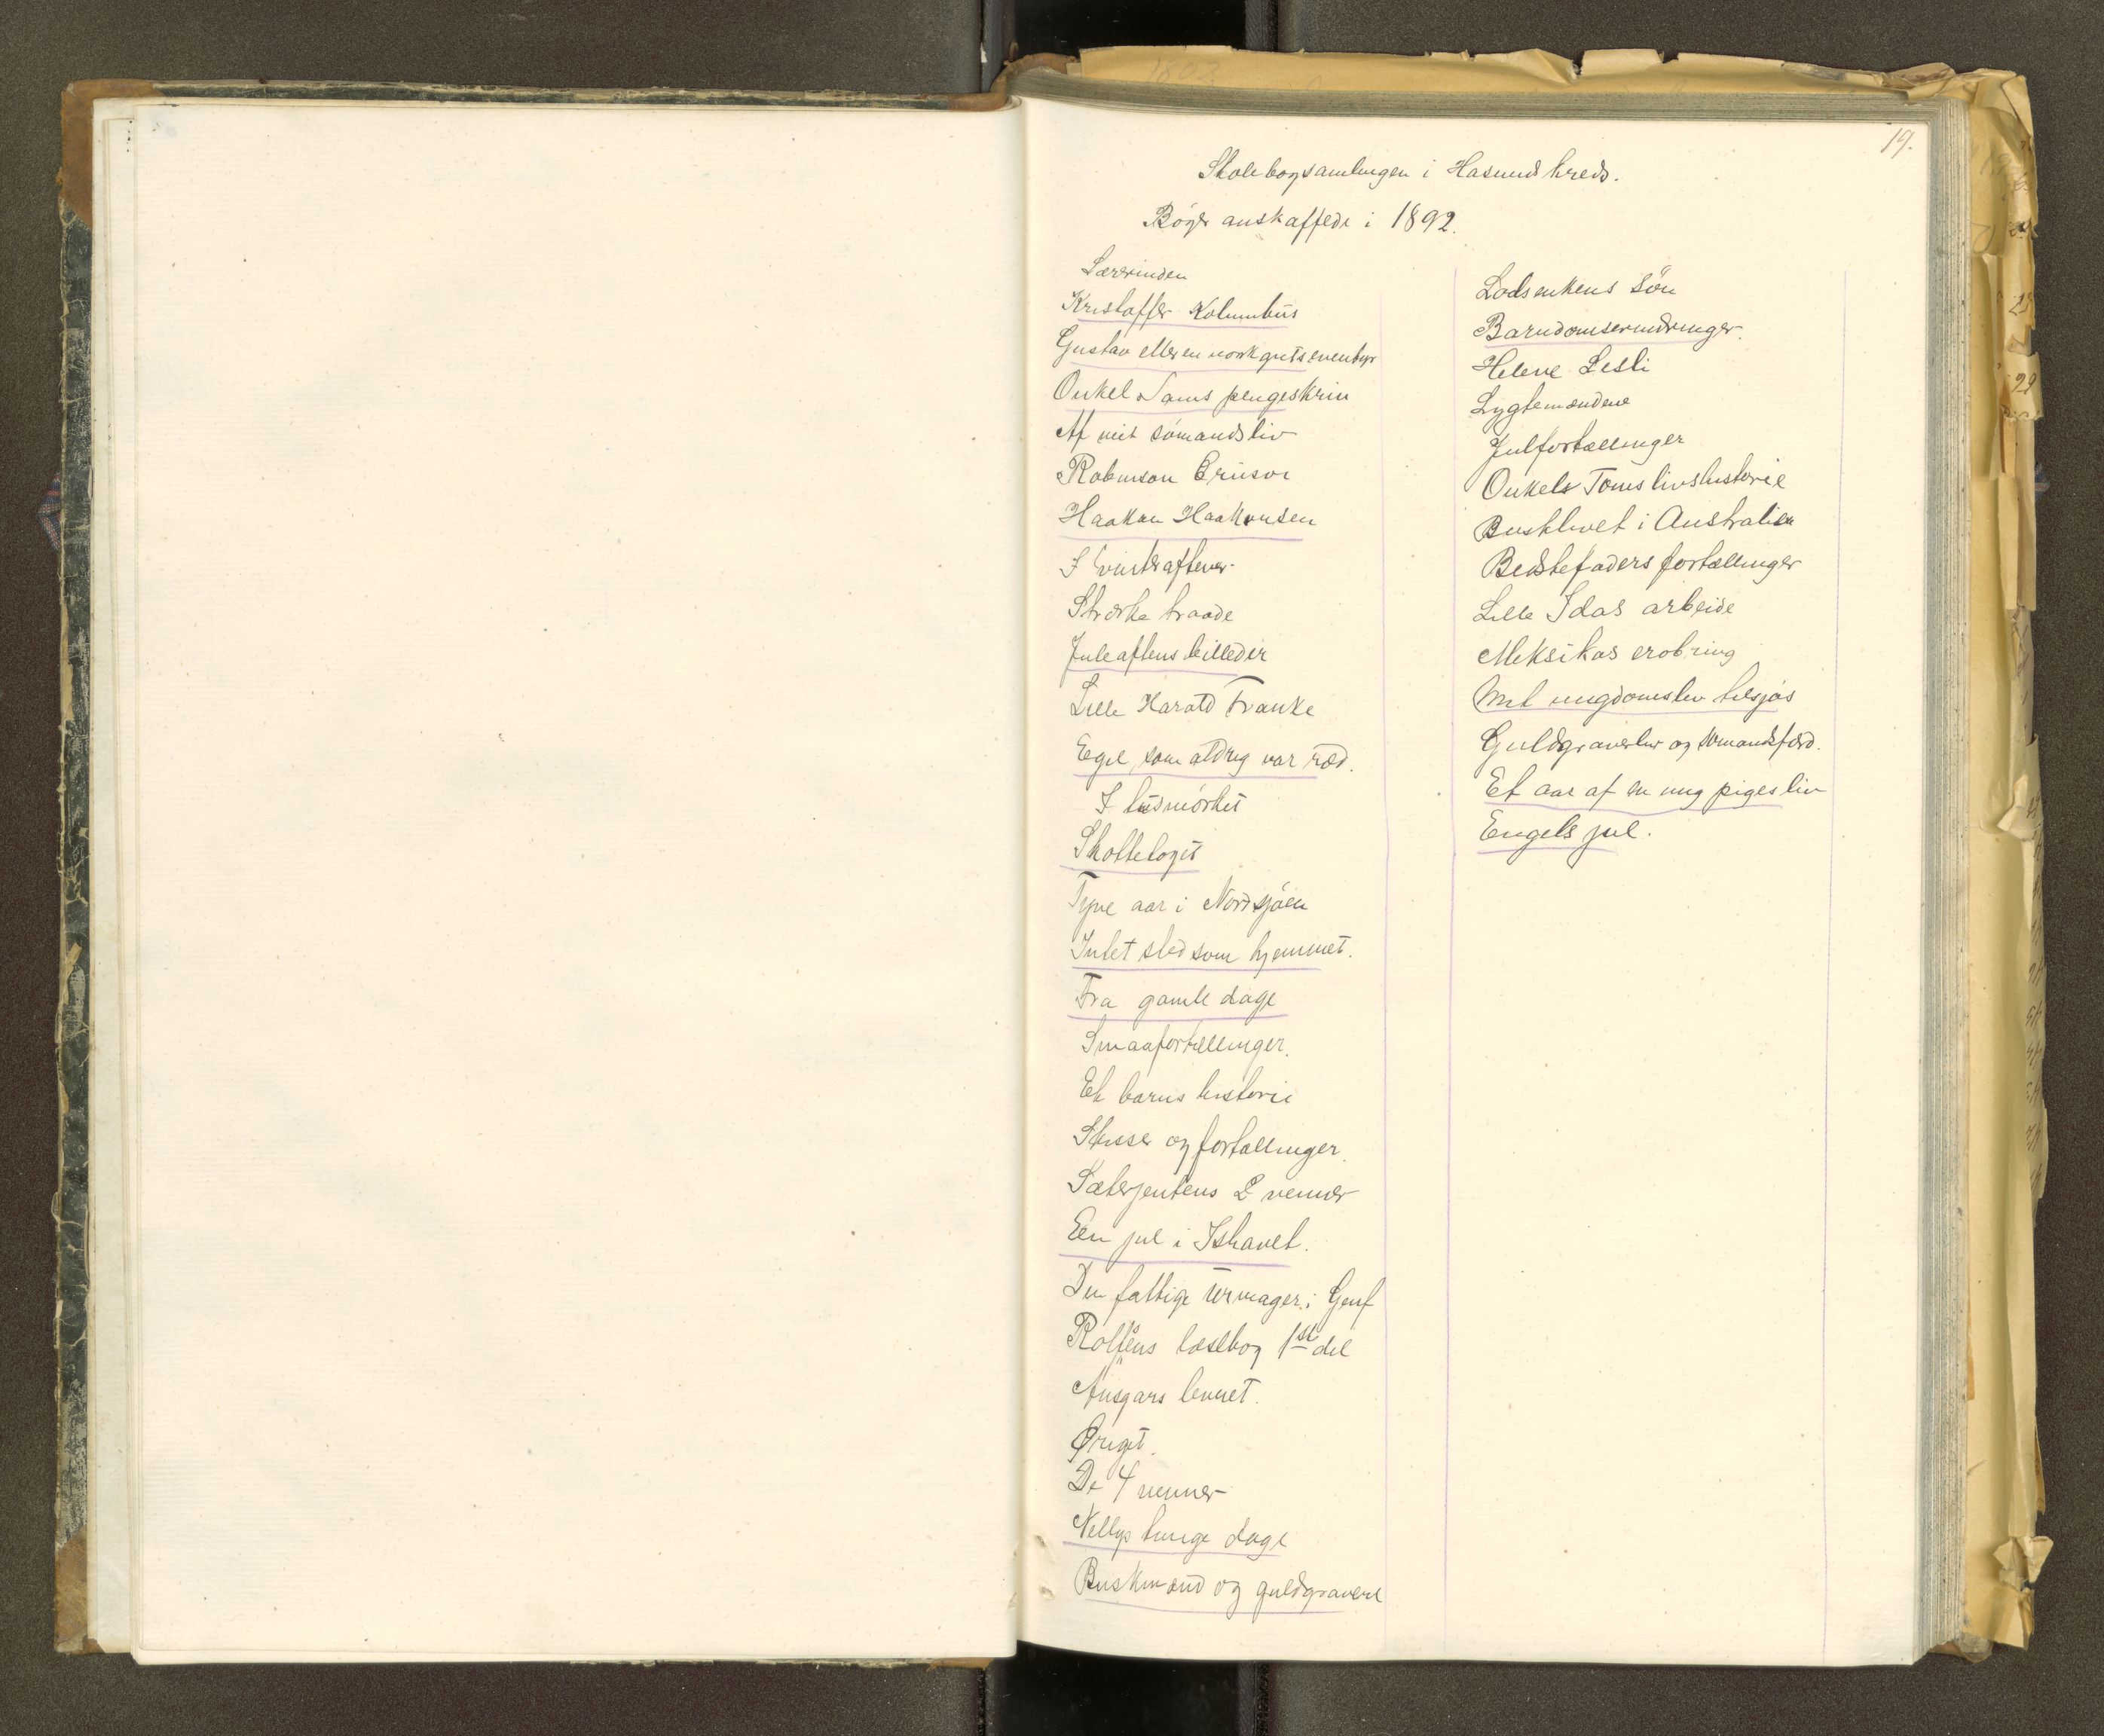 19.
Skolebogsamlingen i Hasund kreds.
Bøger anskaffede i 1892.
Lærerinden
Kristoffer Kolumbus
Gustav eller en norsk guts eventyr
Onkel Sams pengeskrin
Af mit sømandsliv
Robinson Crusoe
Haakon Haakonsen
I vinteraftener
Stærke traade
Juleaftensbilleder
Lille Harald Franke
Egil, som aldrig var ræd.
I tusmørket
Skottetoget
Tyve aar i Nordsjøen
Intet sted som hjemmet.
Fra gamle dage
Smaafortellinger.
Et barns historie
Skisser og fortællinger.
Sæterjentens 2 venner
En jul i Ishavet.
Den fattige urmager i Genf
Rolfsens læsebog 1ste del
Ansgars levnet.
De 4 venner
Nellys tunge dage
Buskmænd og guldgravere
Lodsenkens søn
Barndomserindringer.
Helene Lesli
Lygtemændene
Julfortællinger
Onkels Toms livshistorie
Busklivet i Australien
Bedstefaders fortællinger
Lille Idas arbeide
Meksikos erobring
Mit ungdomsliv tilsjøs
Guldgraverliv og sømandsfærd.
Et aar af en ung piges liv
Engels jul.